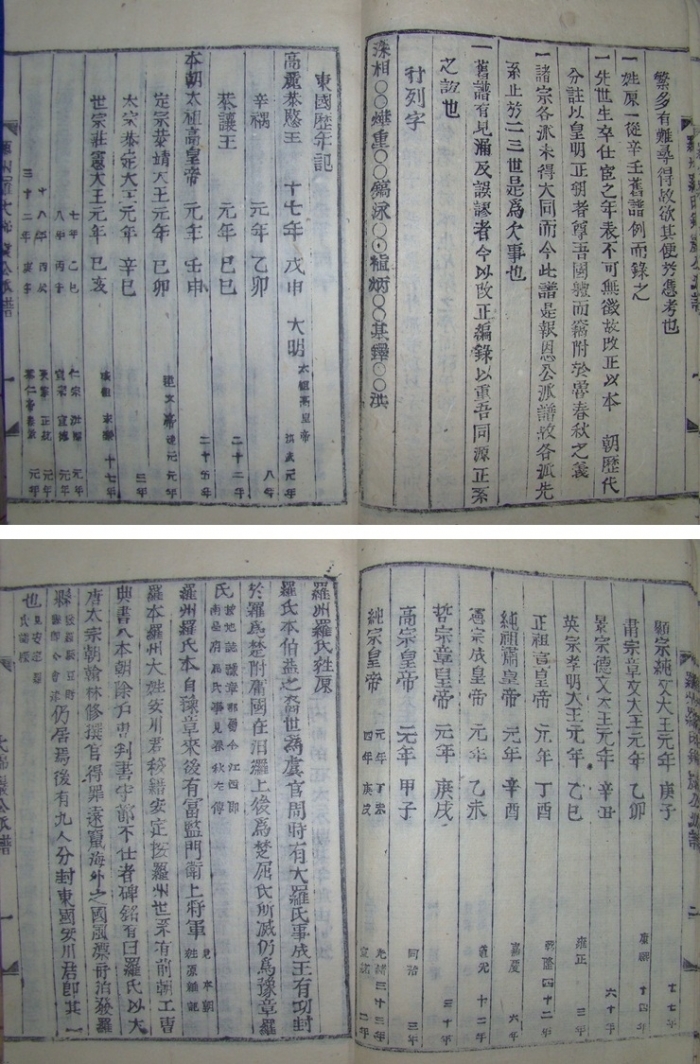 繁多有難尋得故欲其便於憑考也
一姓原一從辛壬舊譜例而錄之
一先世生卒仕宦之年表不可無徵故改正以本 朝歷代
分註以皇明正朔者尊吾國體而竊附於魯春秋之義
一諸宗各派未得大同而今此譜是報恩公派譜故各派先
系止於二三世是爲欠事也
一舊譜有見漏及誤謬者今以改正編錄以重吾同源正系
之誼也
行列字
相〇〇 重〇〇 泳〇〇 炳〇〇基 〇〇洪
東國歷年記
高麗恭愍王 十七年 戊申 大明 太祖高皇帝 洪武元年
辛禑 元年 乙卯 八年
恭讓王 元年 己巳 二十二年
本朝太祖高皇帝 元年 壬申 二十五年
定宗恭靖大王元年 己卯 元年
太宗恭定大王元年 辛巳 三年
世宗莊憲大王元年 己亥 十七年
七年 乙巳 仁宗 洪熙 元年
八年 丙午 宣宗 宣德 元年
十八年 丙辰 正統 元年
三十二年 庚午 元年
顯宗純文大王元年 庚子 十七年
肅宗章文大王元年 乙卯 康熙 十四年
景宗德文大王元年 辛丑 六十年
英宗孝明大王元年 乙巳 雍正 三年
正祖宣皇帝 元年 丁酉 乾隆四十二年
純祖肅皇帝 元年 辛酉 嘉慶 六年
憲宗成皇帝 元年 乙未 道光 十五年
哲宗章皇帝 元年 庚戌 三十年
高宗皇帝 元年 甲子 同治 三年
純宗皇帝 元年 丁未 光緒三十三年
四年 庚戌 宣統 二年
羅州羅氏姓原
羅氏本伯益之裔世爲虞官周時有大羅氏事成王有功封
於羅爲楚附庸國在汨羅上後爲楚屈氏所滅仍爲豫章羅
氏
羅州羅氏本自豫章來後有富監門衛上將軍
羅本羅州大姓安川君移錯安定按羅州世系有前朝工曹
典書入本朝除戶曹判書守節不仕者碑銘有曰羅氏以大
唐太宗朝翰林修撰官得罪遠竄海外之國風漂舟泊發羅
縣 仍居焉後有九人分封東國安川君卽其一
也